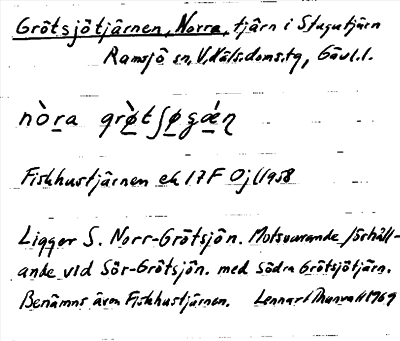 Grötsjötjärnen, Norra, tjärn i Stugutjärn
Ramsjö sn, V. Häls. doms.tg, Gävl.l.
nò̱ra grø̱̀tʃø̱gǽ̱n
Fiskhustjärnen ek 17F Oj/1958
Ligger S. Norr-Grötsjön. Motsvarande förhåll-
ande vid Sör-Grötsjön. med Södra Grötsjötjärn.
Benämns även Fiskhustjärnen. Lennart 1969